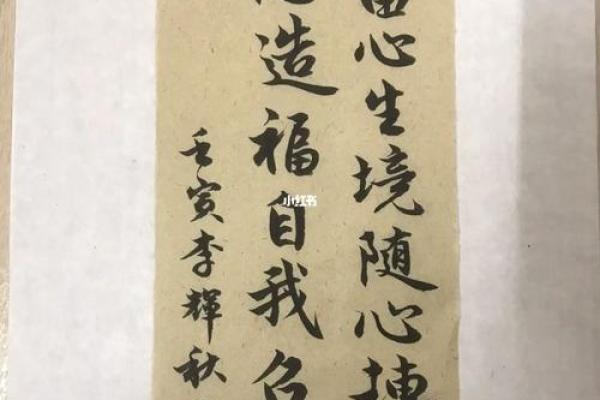 心生境随心
造福自我
壬寅李輝秋
小红书